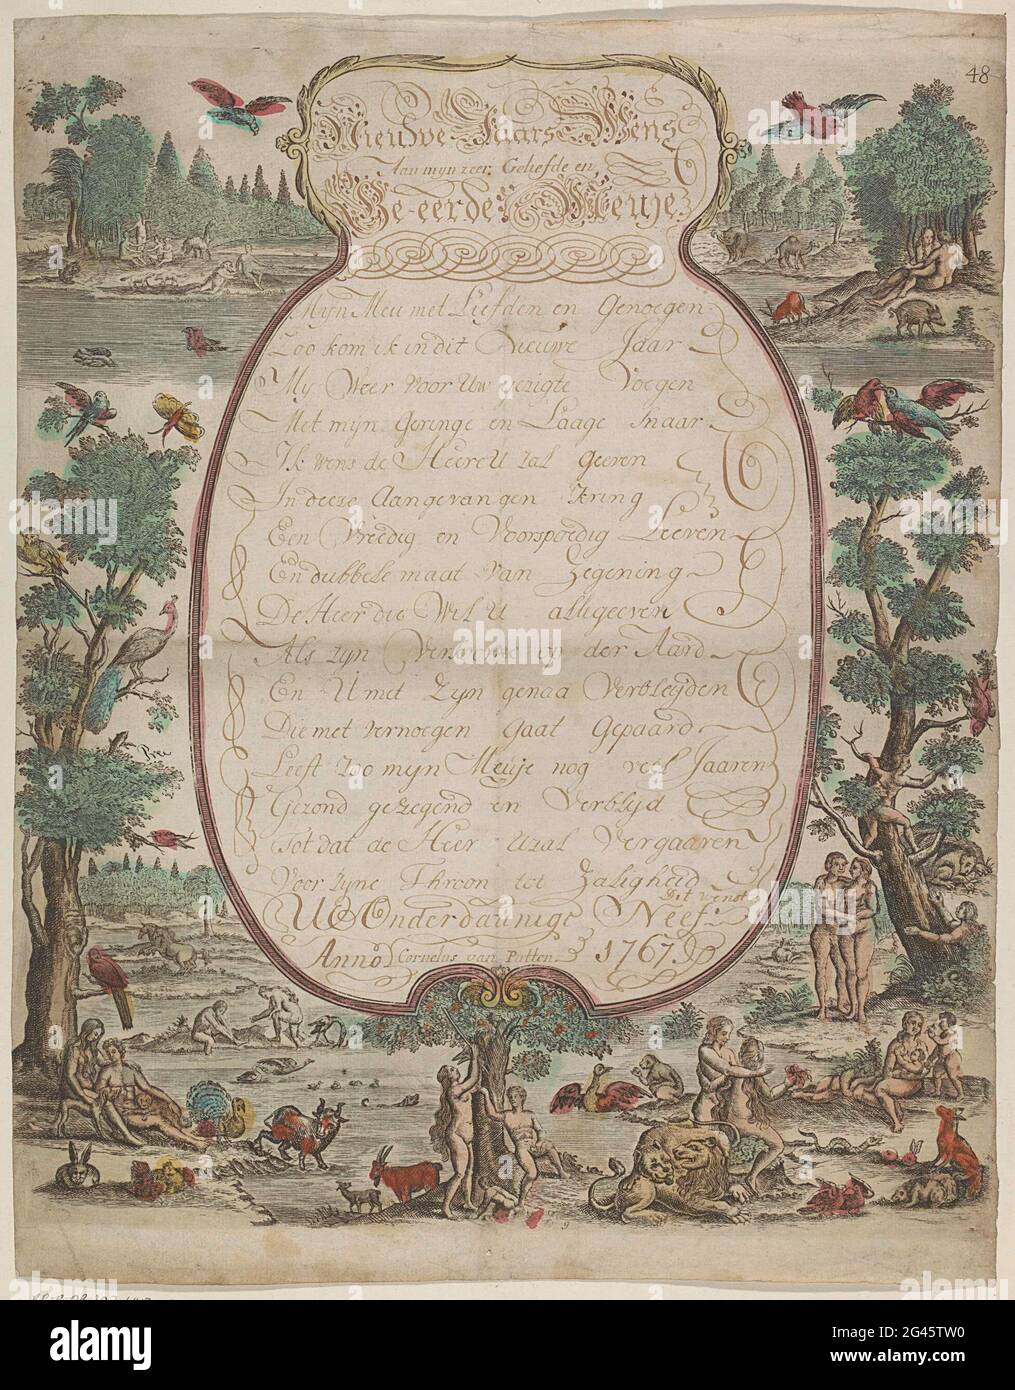 48
Nieuwe Jaars Wens
Aan myn zeer Geliefde en
Ge-eerde Meuje
Mijn Meu met Liefden en Genoegen
Zoo kom ik in dit Nieuwe Jaar
My Weer voor Uw gezigte Voegen
Met mijn Geringe en Laage Snaar
Ik wens de Heere U zal geeven
In deeze Aangevangen Kring
Een Vreedig en Voorspoedig Leeven
En dubbele maat van Zegening
De Heer die Wil U allesgeeven
Als zyn op der Aard
En U met Zyn genaa Verbleyden
Die met vernoegen Gaat Gepaard
Leeft Zoo myn Meuje nog veel Jaaren
Gezond gezegend en Verblyd
Tot dat de Heer U zal Vergaaren
Voor Zyne Throon tot Zaligheid
Dit Wenst
UE Onderdaanigt Neef
Anno Cornelus van Putten 1767
9
alamy
Image ID: 2G45TW0
www.alamy.com